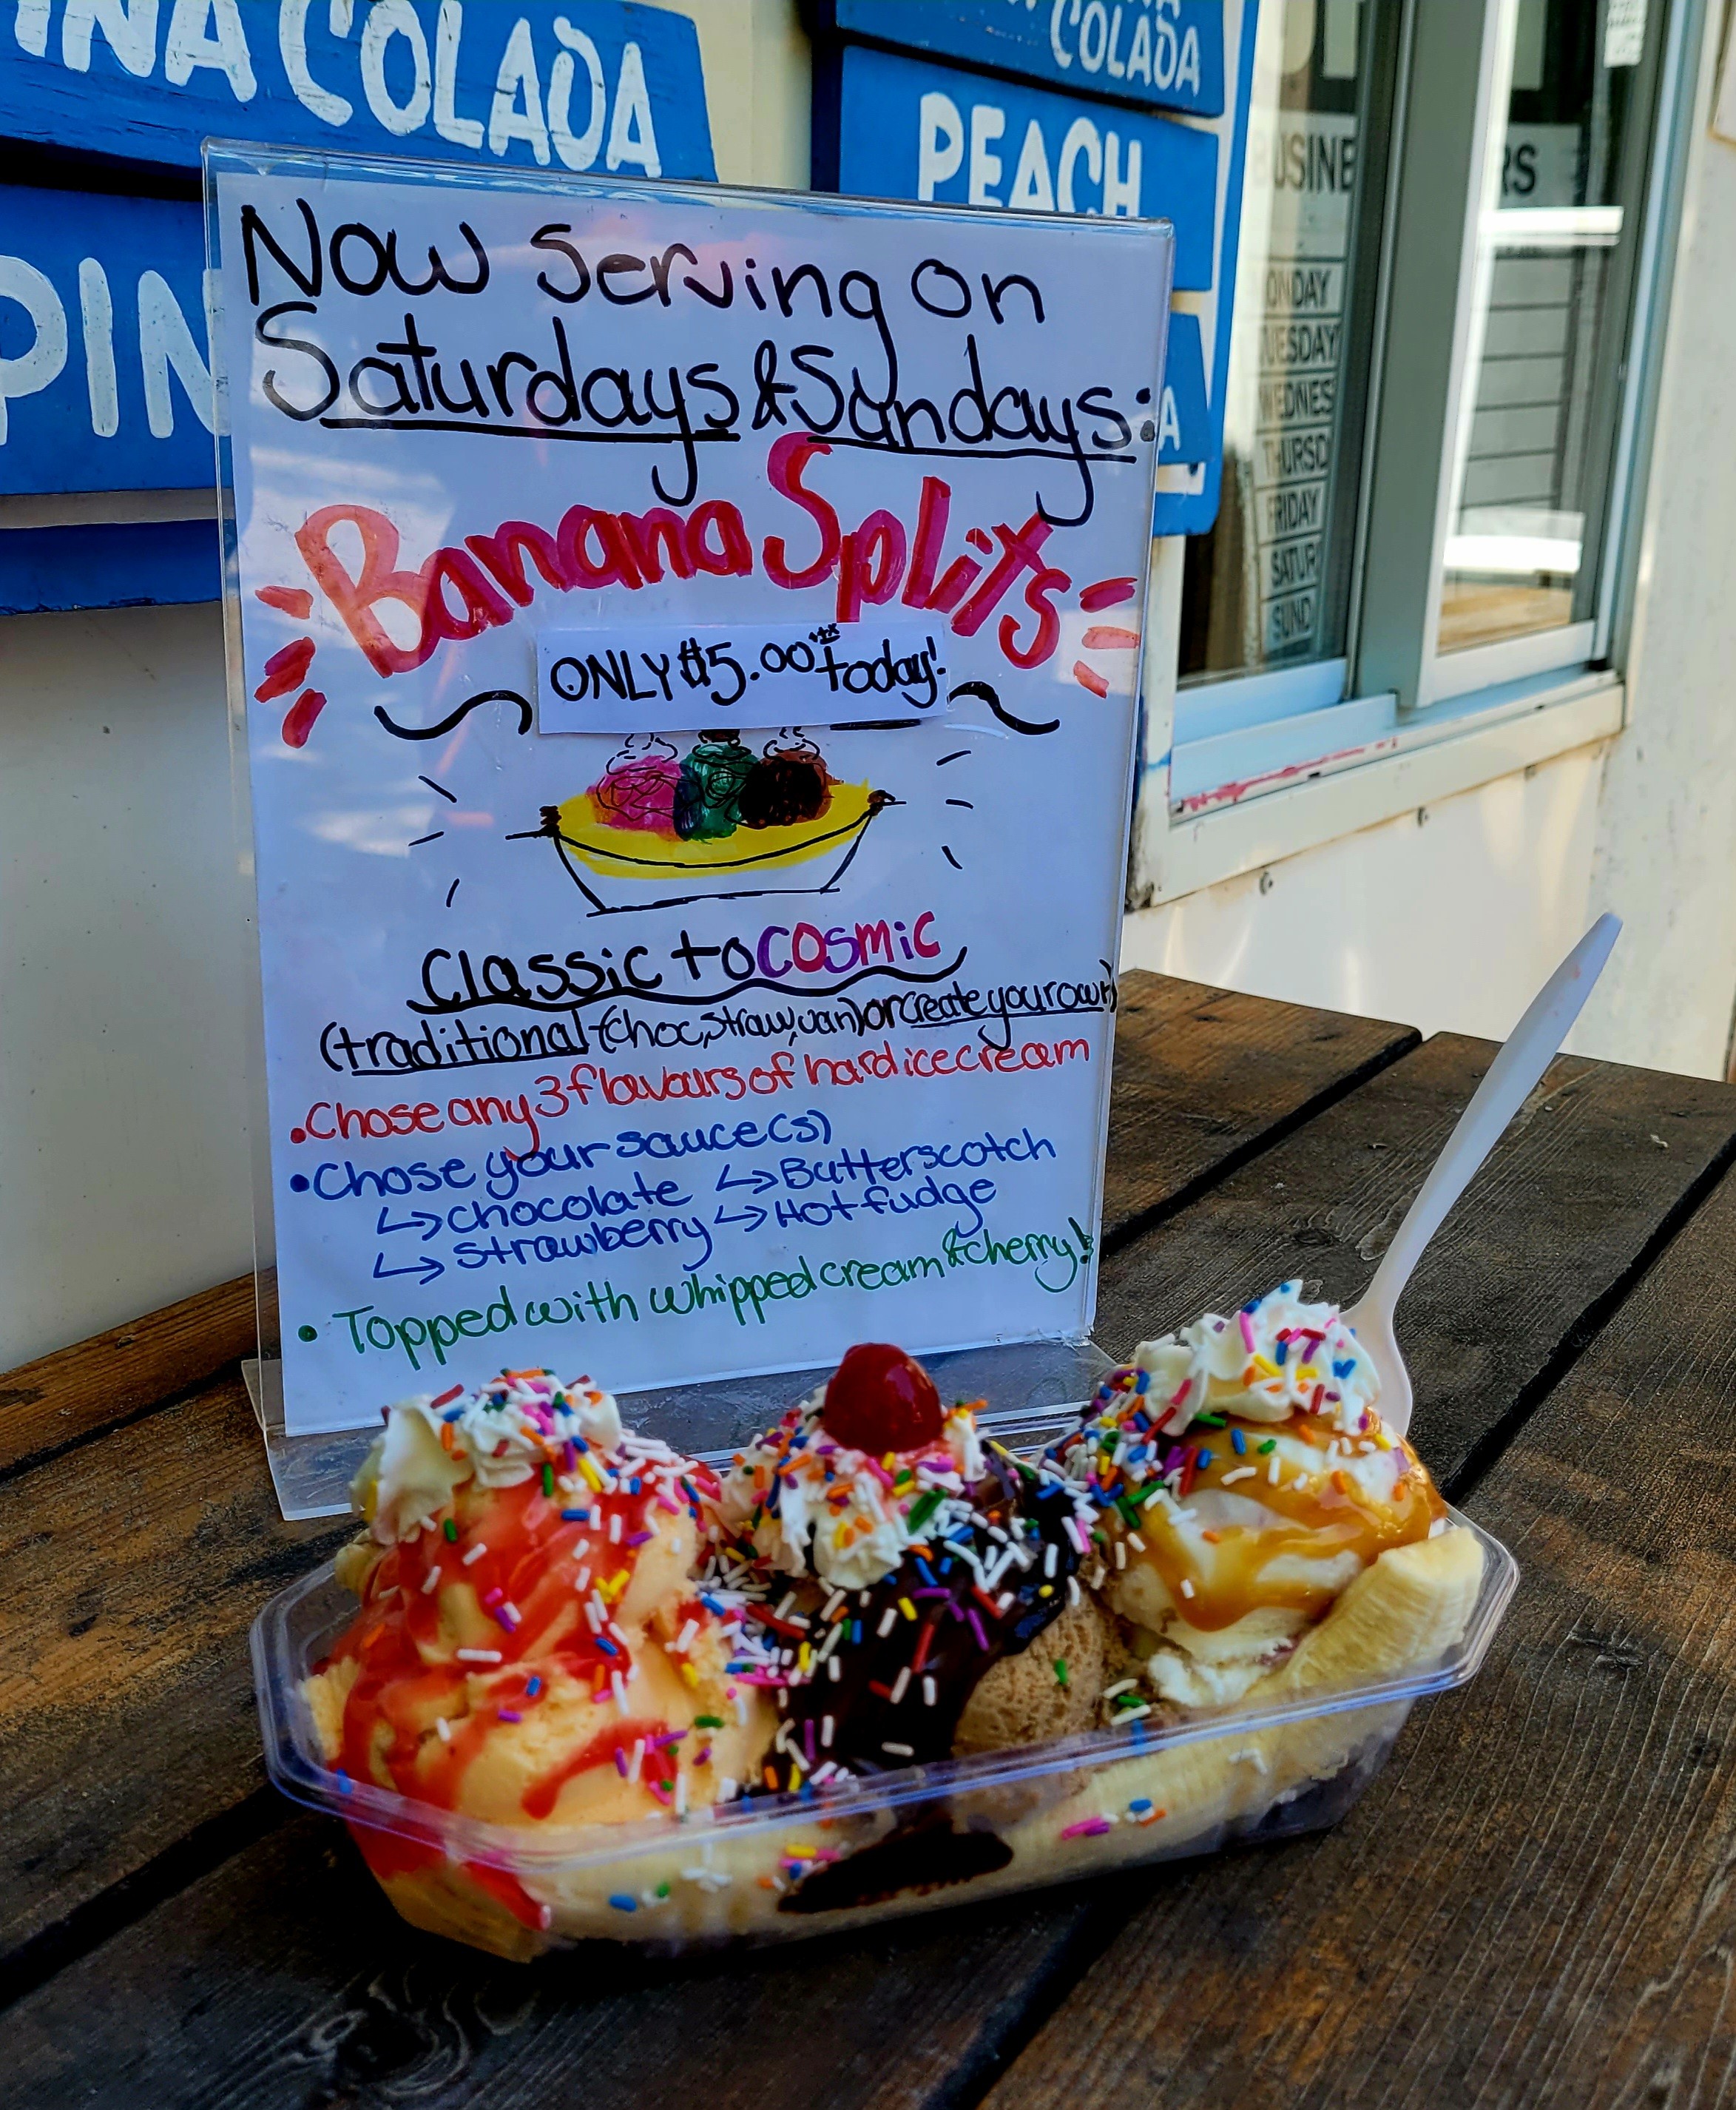 COLADA
COLADA
PEACH
PIN
A
ONDAY
FRIDAY
Now Serving on
Saturdays & Sundays:
Banana Splits
ONLY $5.00 today!
Classic to COSMIC
(traditional-(choc, straw, van) or create your own)
• Chose any 3 flavours of hard ice cream
• Chose your sauce(s)
↳ chocolate ↳ Butterscotch
↳ strawberry ↳ Hot fudge
• Topped with whipped cream & cherry!